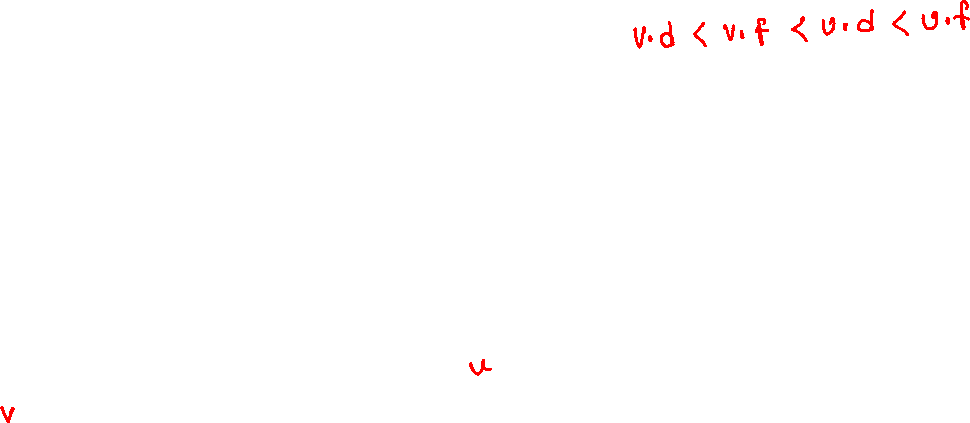 v.d < v.f < u.d < u.f
u
v